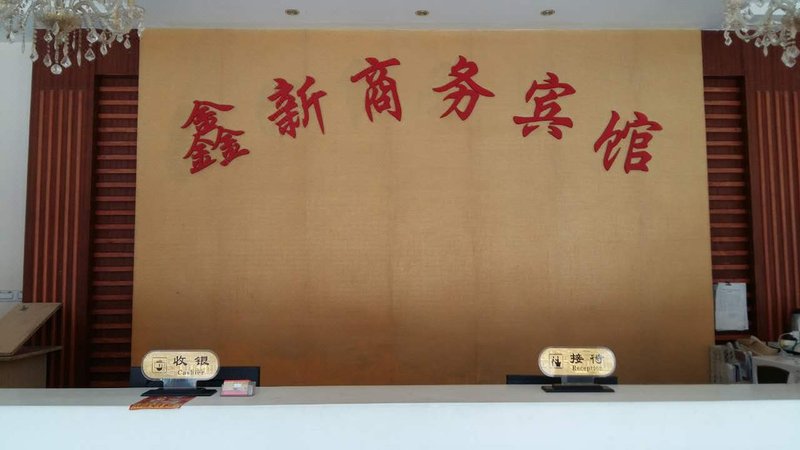 鑫新商务宾馆
收银
Cashier
接待
Reception